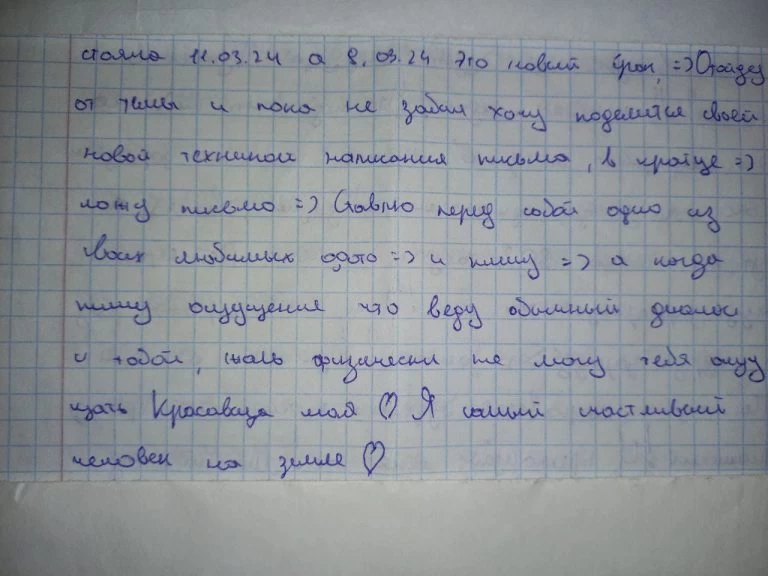 стояла 11.03.24 а 8.03.24 это новый срок, =) Отойду
от темы и пока не забыл хочу поделится своей
новой техникой написания письма, в кратце =)
ложу письмо =) Ставлю перед собой одно из
твоих любимых фото =) и пишу =) а когда
пишу ощущение что веду обычный диалог
с тобой, жаль физически не могу тебя ощу
щать Красавица моя ♡ Я самый счастливый
человек на земле ♡